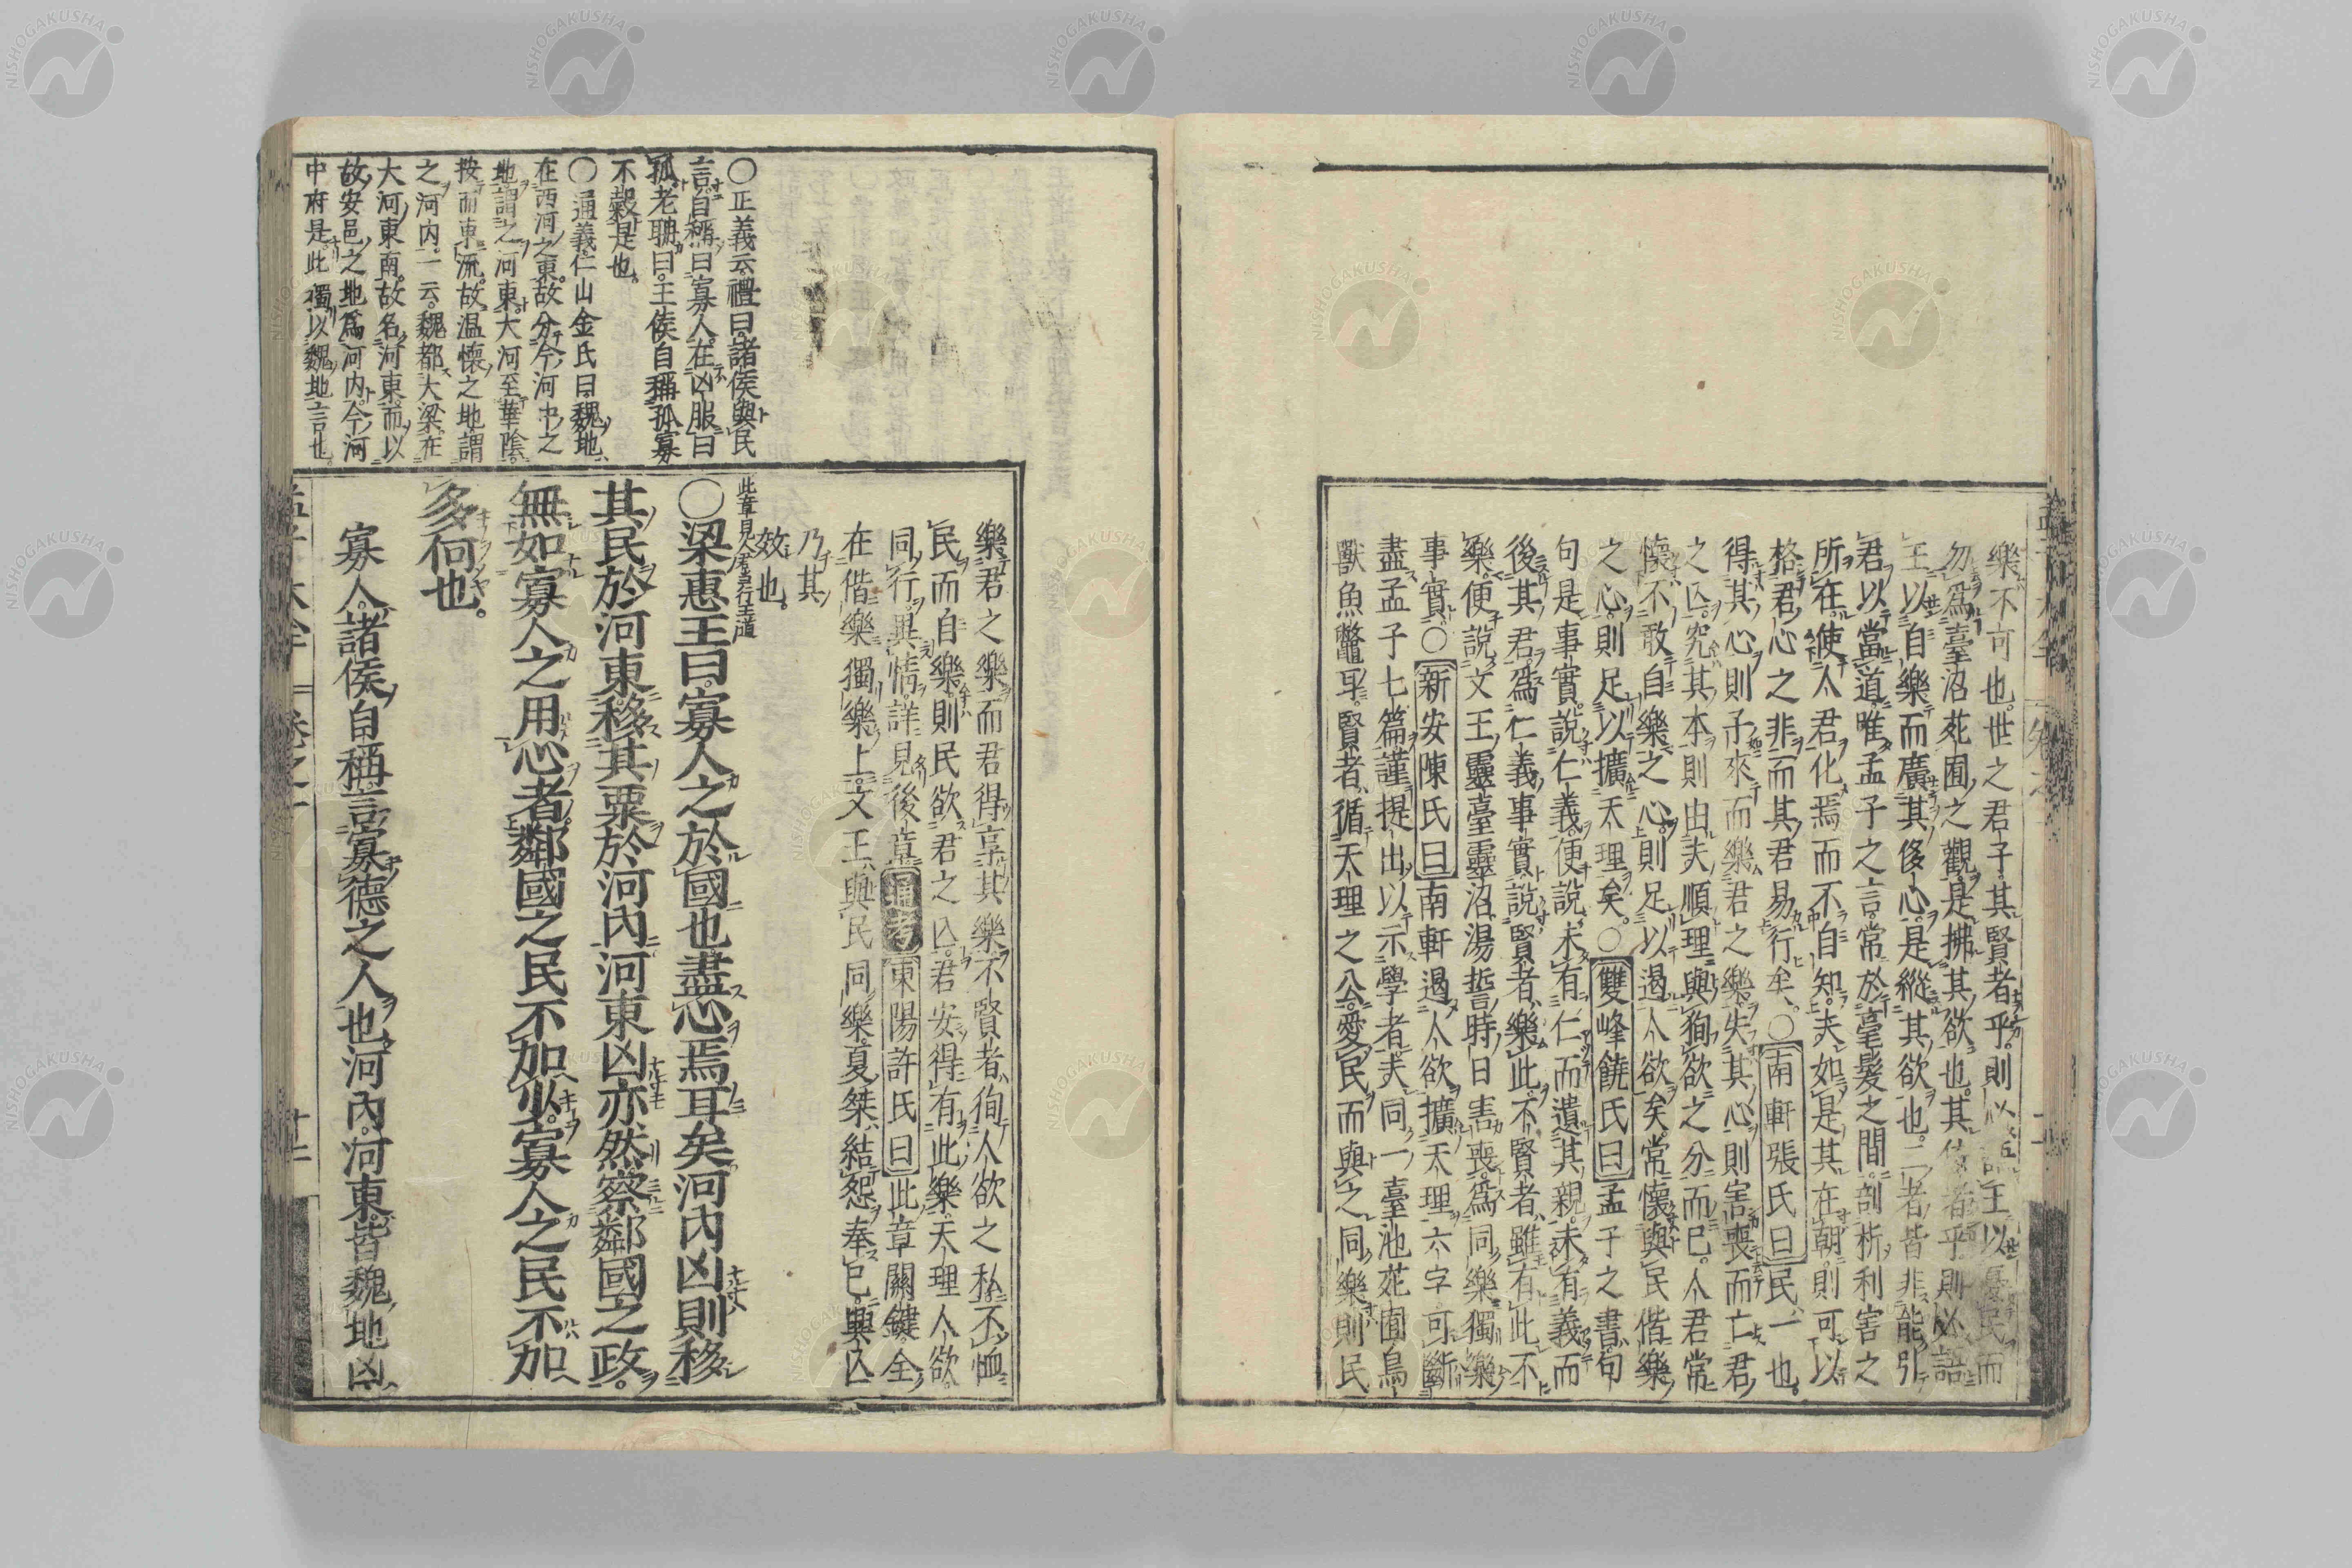 樂不可也世之君子其賢者乎則必語王以憂民而
勿爲臺沼苑囿之觀是拂其欲也其佞者乎則必語
王以自樂而廣其侈心是縱其欲也二者皆非能引
君以當道唯孟子之言常於毫髮之間剖析利害之
所在使人君化焉而不自知夫如是其在朝則可以
格君心之非而其君易行矣○南軒張氏曰民一也
得其心則子來而樂君之樂失其心則害喪而亡君
之亾究其本則由夫順理與狥欲之分而已人君常
懷不敢自樂之心則足以遏人欲矣常懷與民偕樂
之心則足以擴天理矣○雙峰饒氏曰孟子之書句
句是事實說仁義便說未有仁而遺其親未有義而
後其君爲仁義事實說賢者樂此不賢者雖有此不
樂便說文王靈臺靈沼湯誓時日害喪爲同樂獨樂
事實○新安陳氏曰南軒遏人欲擴天理六字可斷
盡孟子七篇謹提出以示學者夫同一臺池苑囿鳥
獸魚鼈耳賢者循天理之公愛民而與之同樂則民
樂君之樂而君得享其樂不賢者徇人欲之私不恤
民而自樂則民欲君之亾君安得有此樂天理人欲
同行異情詳見後章通考東陽許氏曰此章關鍵全
在偕樂獨樂上文王與民同樂夏桀結怨奉已與亾
乃其
效也
此章見人君當行王道
○梁惠王曰寡人之於國也盡心焉耳矣河內凶則移
其民於河東移其粟於河內河東凶亦然察鄰國之政
無如寡人之用心者鄰國之民不加少寡人之民不加
多何也
寡人諸侯自稱言寡德之人也河內河東皆魏地凶
○正義云禮曰諸侯與民
言自稱曰寡人在凶服曰
孤老聃曰王侯自稱孤寡
不穀是也
○通義仁山金氏曰魏地
在西河之東故分今河中之
地謂之河東大河至華陰
按而東流故温懷之地謂
之河内一云魏都大梁在
大河東南故名河東而以
故安邑之地爲河内今河
中府是此獨以魏地言也
孟子大全 卷之一 十二
NISHOGAKUSHA